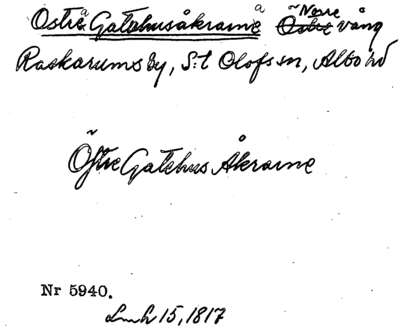 Östre Gatehusåkrarne Norre Östre vång
Raskarums by, S:t Olofs sn, Albo hd
Östre Gatehus Åkrarne
Nr 5940.
Lmh 15, 1817